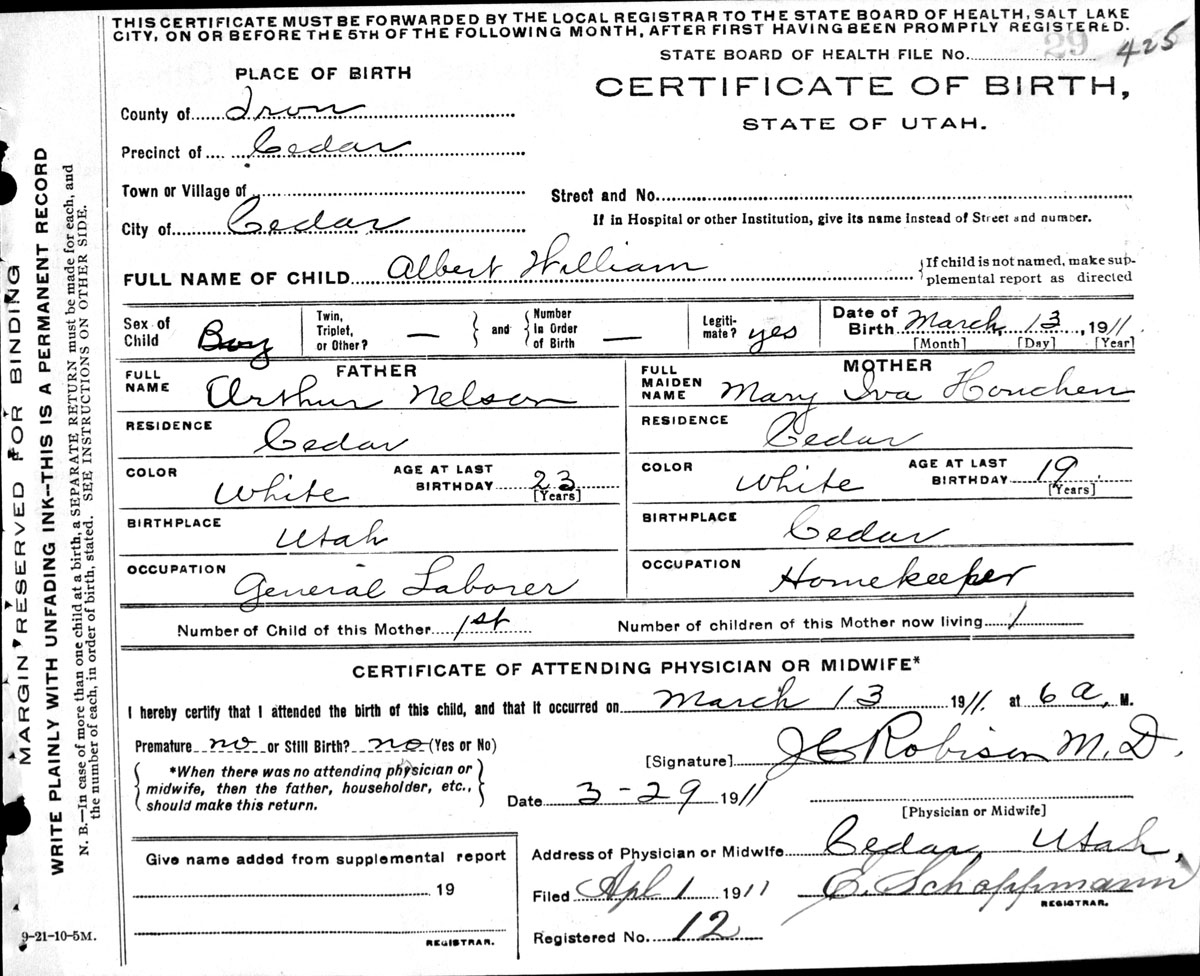 THIS CERTIFICATE MUST BE FORWARDED BY THE LOCAL REGISTRAR TO THE STATE BOARD OF HEALTH, SALT LAKE
CITY, ON OR BEFORE THE 5TH OF THE FOLLOWING MONTH, AFTER FIRST HAVING BEEN PROMPTLY REGISTERED.
STATE BOARD OF HEALTH FILE No. 29 425
PLACE OF BIRTH
CERTIFICATE OF BIRTH,
STATE OF UTAH.
County of Iron
Precinct of Cedar
Town or Village of
Street and No.
City of Cedar
If in Hospital or other Institution, give its name instead of Street and number.
FULL NAME OF CHILD Albert William
If child is not named, make sup-
plemental report as directed
Sex of Child Boy
Twin, Triplet, or Other? —
and
Number In Order of Birth —
Legiti-mate? yes
Date of Birth March 13, 1911.
[Month] [Day] [Year]
FATHER
FULL NAME Arthur Nelson
RESIDENCE Cedar
COLOR White
AGE AT LAST BIRTHDAY 23
[Years]
BIRTHPLACE Utah
OCCUPATION General Laborer
MOTHER
FULL MAIDEN NAME Mary Iva Houchen
RESIDENCE Cedar
COLOR White
AGE AT LAST BIRTHDAY 19
[Years]
BIRTHPLACE Cedar
OCCUPATION Homekeeper
Number of Child of this Mother 1st
Number of children of this Mother now living 1
CERTIFICATE OF ATTENDING PHYSICIAN OR MIDWIFE*
I hereby certify that I attended the birth of this child, and that it occurred on March 13 1911. at 6 a. M.
Premature no or Still Birth? no (Yes or No)
[Signature] J C Robison M.D.
*When there was no attending physician or
midwife, then the father, householder, etc.,
should make this return.
Date 3-29 1911
[Physician or Midwife]
Give name added from supplemental report
19
REGISTRAR.
Address of Physician or Midwife Cedar Utah,
Filed Apl 1 1911 E. Schoppmann
REGISTRAR.
Registered No. 12
9-21-10-5M.
MARGIN RESERVED FOR BINDING
WRITE PLAINLY WITH UNFADING INK—THIS IS A PERMANENT RECORD
N. B.—In case of more than one child at a birth, a SEPARATE RETURN must be made for each, and
the number of each, in order of birth, stated. SEE INSTRUCTIONS ON OTHER SIDE.